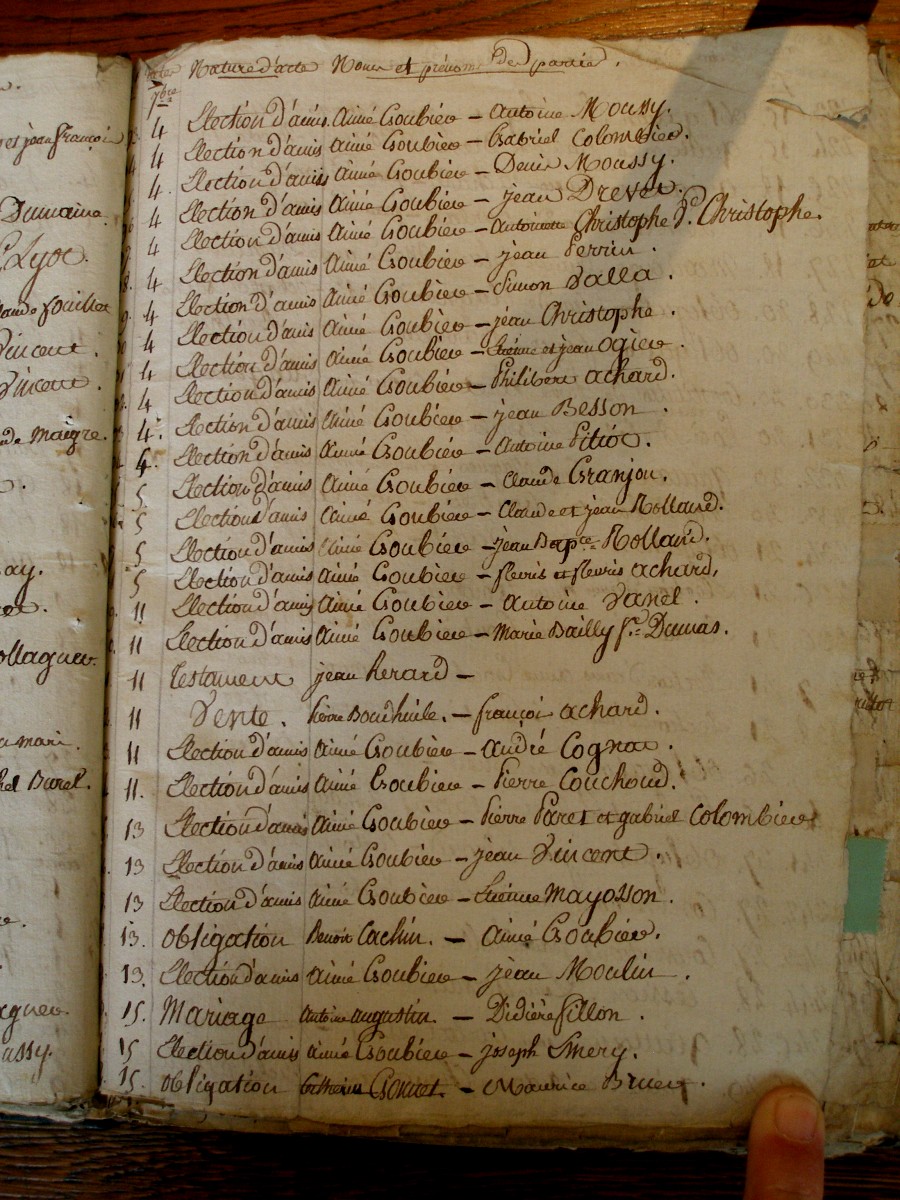 et jean françois
Dumaine
Lyot.
fouillet
Vincent.
Vincent.
Maigre.
ay.
mari.
Burel.
Nature d'acte Noms et prénoms des parties.
7bre
4 Election d'amis Aimé Goubier — Antoine Moussy.
4 Election d'amis Aimé Goubier — Gabriel Colombier.
4. Election d'amis Aimé Goubier — Denis Moussy.
4 Election d'amis Aimé Goubier — jean Drevet.
4 Election d'amis Aimé Goubier — Antoinette Christophe Christophe.
4 Election d'amis Aimé Goubier — jean Perrin.
4 Election d'amis Aimé Goubier — Simon Valla.
4 Election d'amis Aimé Goubier — jean Christophe.
4 Election d'amis Aimé Goubier — Etienne et jean Ogier.
4 Election d'amis Aimé Goubier — Philibert achard.
4. Election d'amis Aimé Goubier — jean Besson.
4. Election d'amis Aimé Goubier — Antoine Pitiot.
5 Election d'amis Aimé Goubier — Claude Granjon.
5 Election d'amis Aimé Goubier — Claude et jean Rolland.
5 Election d'amis Aimé Goubier — jean Bapte Rolland.
5 Election d'amis Aimé Goubier — fleuris et fleuris achard,
11 Election d'amis Aimé Goubier — Antoine Vanel.
11 Election d'amis Aimé Goubier — Marie Bailly fe Dumas.
11 Testament jean herard —
11 Vente. Pierre Bourlhuile. — françois achard.
11 Election d'amis Aimé Goubier — andré Cognat.
11. Election d'amis Aimé Goubier — Pierre Couchoud.
13 Election d'amis Aimé Goubier — Pierre Paret et gabriel Colombier
13 Election d'amis Aimé Goubier — jean Vincent.
13 Election d'amis Aimé Goubier — Etienne Mayosson.
13. obligation Benoit Cachin. — Aimé Goubier.
13. Election d'amis Aimé Goubier — jean Moulin.
15. Mariage Antoine augustin. — Didière fillon.
15 Election d'amis Aimé Goubier — joseph Emery.
15. obligation Catherine Gonnet. — Maurice Bruer.